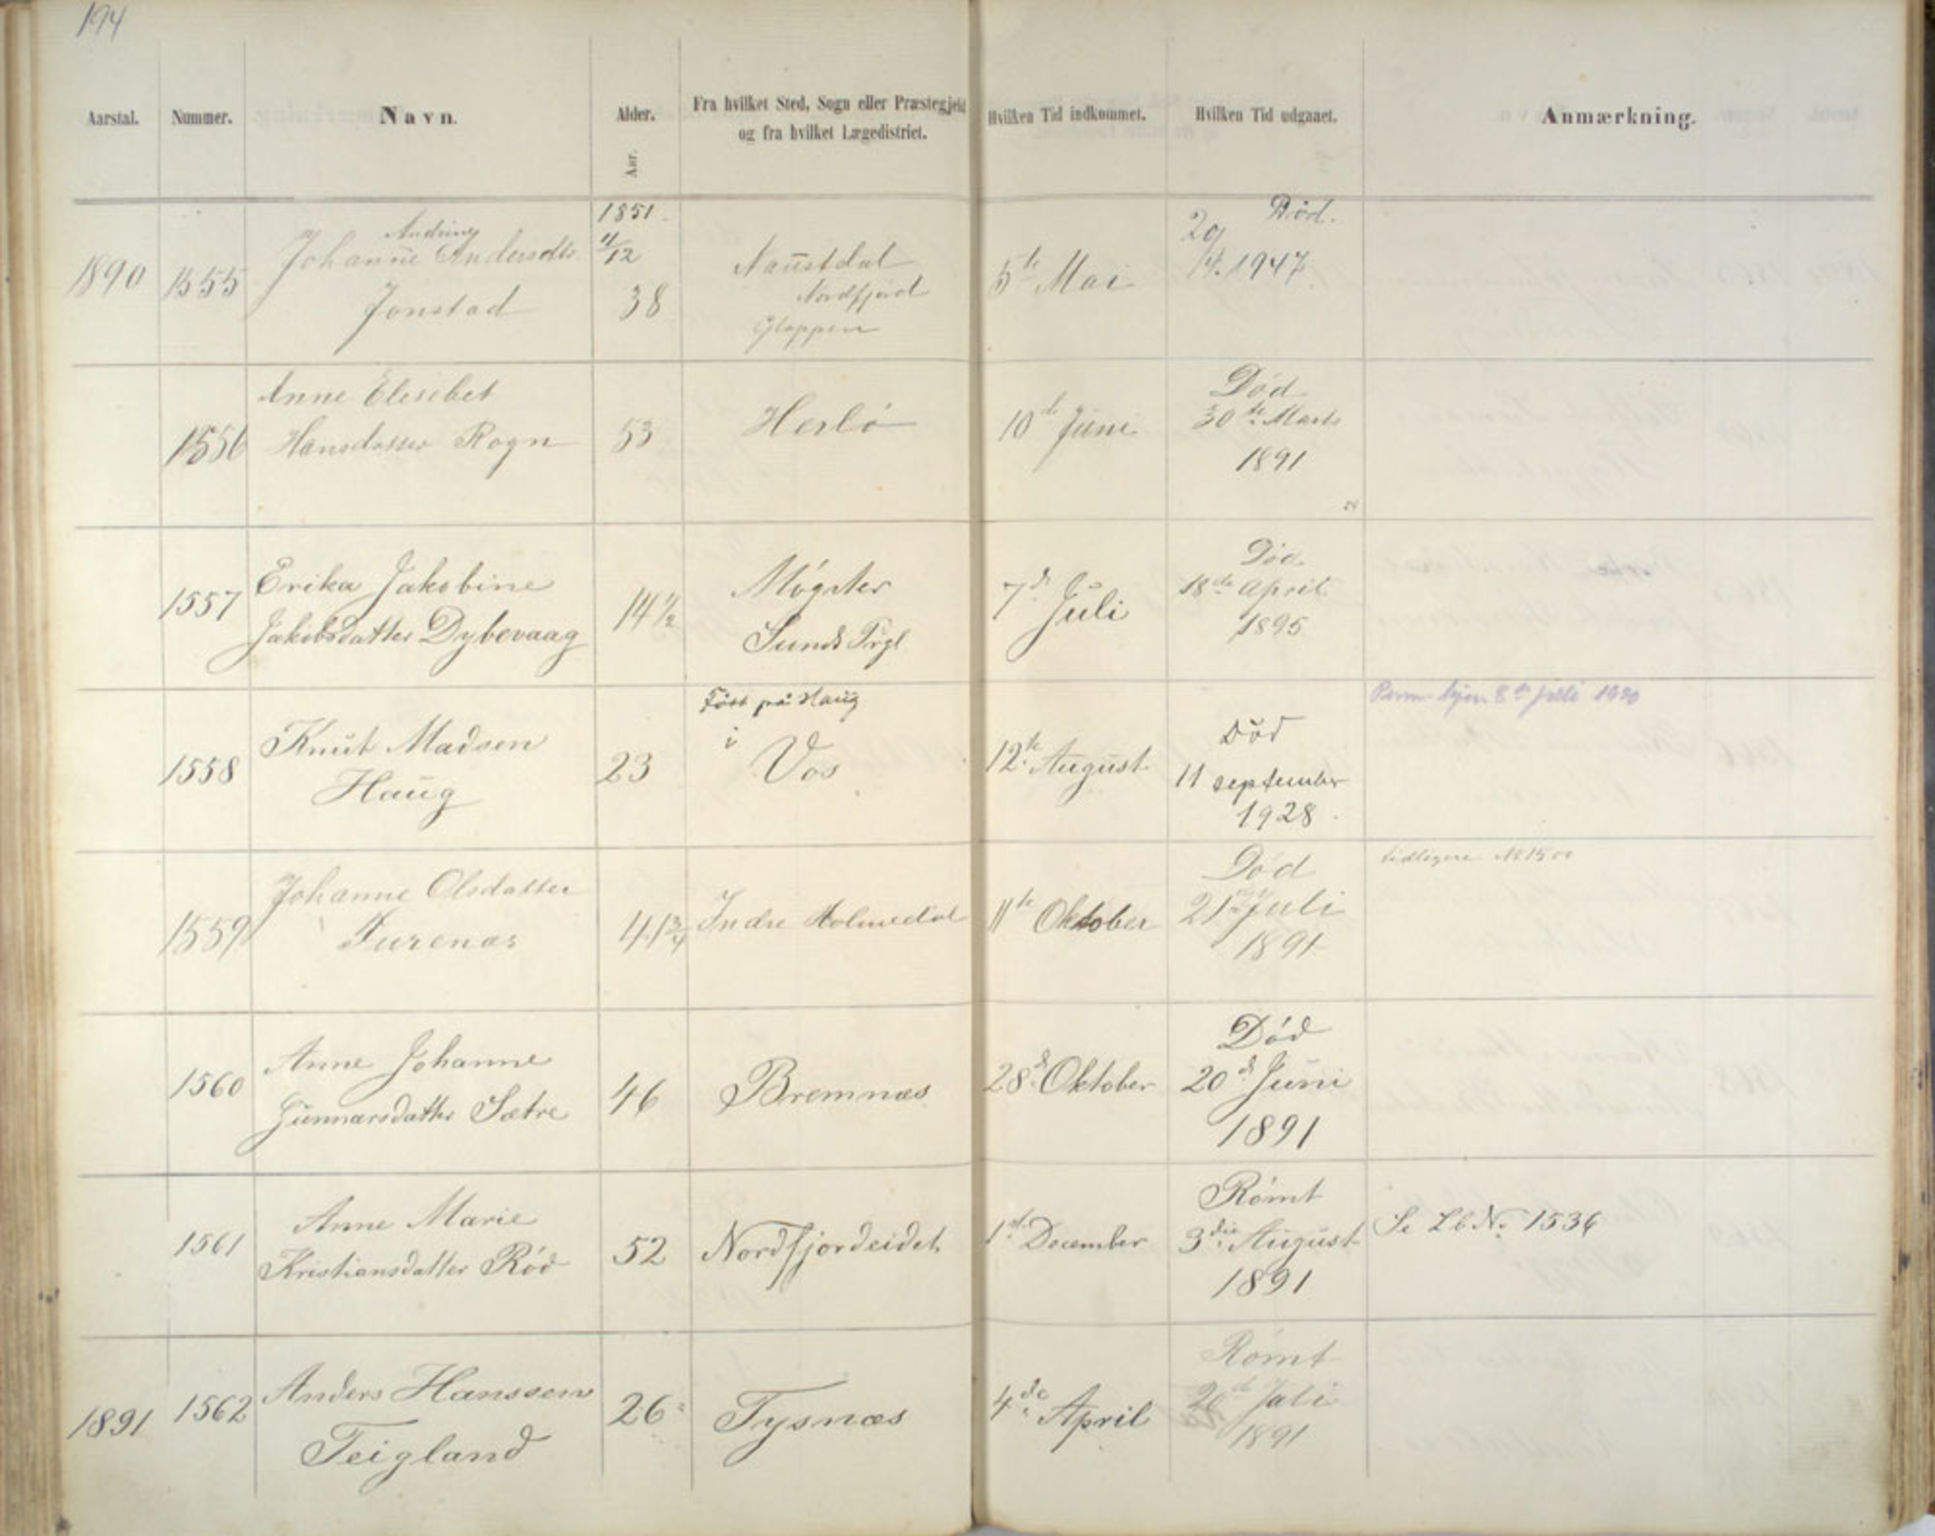 194
Aarstal.
Nummer.
Navn.
Alder.
Aar.
Fra hvilket Sted, Sogn eller Præstegjeld
og fra hvilket Lægedistrict.
Hvilken Tid indkommet.
Hvilken Tid udgaaet.
Anmærkning.
1890
1555
Andrine
Johanne Andersdtr.
Jonstad
1851.
4/12
38
Naustdal
Nordfjord
Gloppen
5te Mai
Død.
29/4. 1947
1556
Anne Elesebet
Hansdatter Rogn
53
Herlö
10de Juni
Död
30te Marts
1891
1557
Erika Jakobine
Jakobsdatter Dybevaag
14 1/2
Møgster
Sunds Prgl
7de Juli
Död
18de April
1895
1558
Knut Madsen
Haug
23
Født på Haug
i
Vos
12te August
Död
11 september
1928.
8de juli 1920
1559
Johanne Olsdatter
Furenæs
41 3/4
Indre Holmedal
11te Oktober
Död
21de Juli
1891
tidligere No 1500
1560
Anne Johanne
Gunnarsdatter Sætre
46
Bremnæs
28de Oktober
Död
20de Juni
1891
1561
Anne Marie
Kristiansdatter Röd
52
Nordfjordeidet
1ste December
Römt
3die August
1891
Se LbNo. 1536
1891
1562
Anders Hanssen
Teigland
26
Tysnæs
4de April
Römt
20de Juli
1891